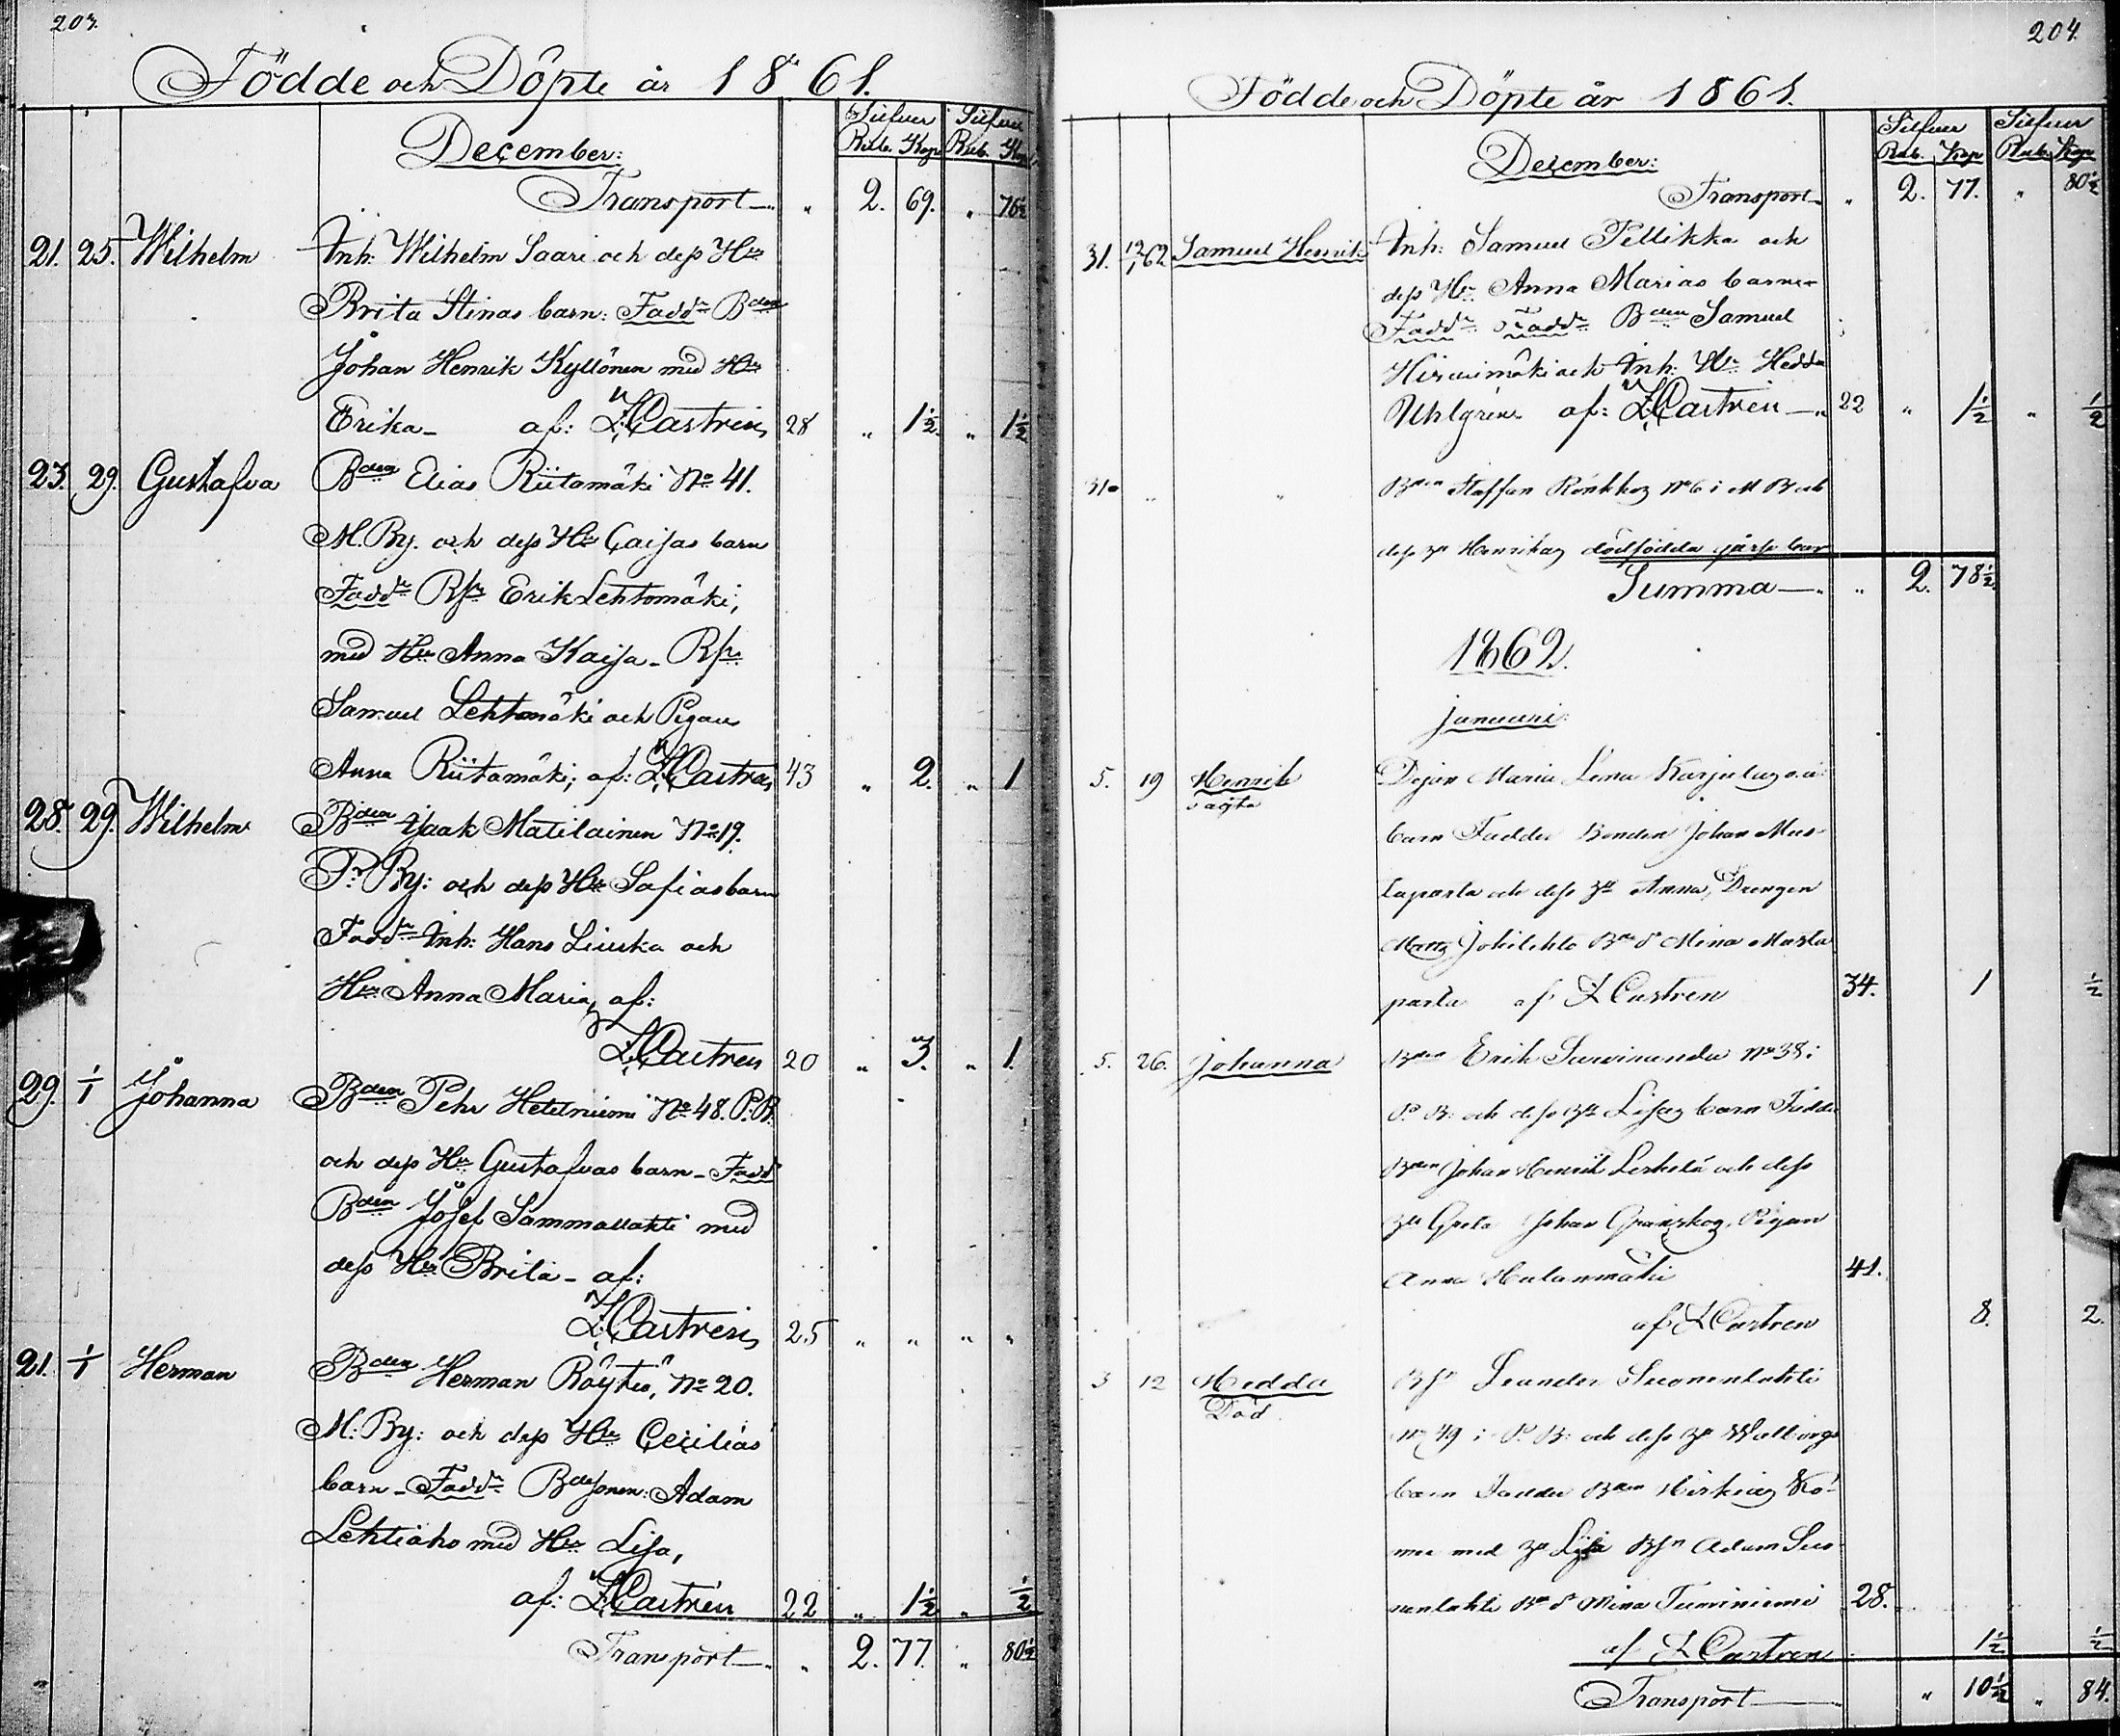 203.
Födde och Döpte år 1861.
Silfuer Silfuer
Rub. Kop Rub. Kop
December:
Transport " 2. 69. " 76½
21. 25. Wilhelm Inh: Wilhelm Saari och dess Hu
Brita Stinas barn: Fadd Bden
Johan Henrik Kyllönen med Hu
Erika af: Z: Castren 28 " 1½ " 1½
23. 29. Gustafva Bden Elias Riitamäki No 41.
M. By. och dess Hu Caisas barn
Fadd Rss Erik Lehtomäki,
med Hu Anna Kaisa - Rss
Samuel Lehtomäki och Pigan
Anna Riitamäki; af: Z: Castren 43 " 2. " 1
28. 29. Wilhelm Bden Isaak Matilainen No 19.
P. By: och dess Hu Safias barn
Fadd Inh: Hans Liuska och
Hu Anna Maria, af:
Z: Castren 20 " 3. " 1.
29. 1/1 Johanna Bden Pehr Heteniemi No 48. P. B.
och dess Hu Gustafvas barn - Fadd
Bden Josef Sammallahti med
dess Hu Brita - af:
Z: Castren 25 " " " "
21. 1/1 Herman Bden Herman Röytiö, No 20.
M: By: och dess Hu Cecilias
barn - Fadd Bdesonen: Adam
Lehtiaho med Hu Lisa,
af: Z: Castren 22 " 1½ " ½
Transport " 2. 77. " 80½
204.
Födde och Döpte år 1861.
Silfuer Silfuer
Rub. Kop Rub. Kop
December:
Transport " 2. 77. " 80½
31. 12/1 62 Samuel Henrik Inh: Samuel Pellikka och
dess Hu Anna Marias barn
Fadd Fadd Bden Samuel
Hirvimäki och Inh: Hu Hedda
Uhlgren af: Z: Castren 22 " 1½ " ½
31 " " Bden Staffan Rönkkoz No 6 i M By och
dess Hu Henrikas dödfödda
Summa " 2. 78½
1862.
januari:
5. 19 Henrik Dejan Maria Lena Karjalaz o. ä.
oägta
barn Faddr Bonden Johan Mus-
taparta och dess Hu Anna, Drengen
Matts Jokilehto Bde d Mina Musta
parta af Z Castren 34. 1 ½
5. 26. Johanna Bden Erik No 38 i
P. B: och dess Hu Lisas barn Faddr
Bden Johan Henrik Leskelä och dess
Hu Greta Johan Pigan
Anna 41.
af Z Castren 8. 2.
3 12 Hedda Bsn Leander Suonenlahti
Död
No 49 i P. B: och dess Hu Walborgs
barn Faddr Bden
med Hu Lisa Bsn Adam Suo-
nenlahti Bde d Mina Tuminiemi 28.
af Z Castren 1½ ½
Transport " 10½ " 84.